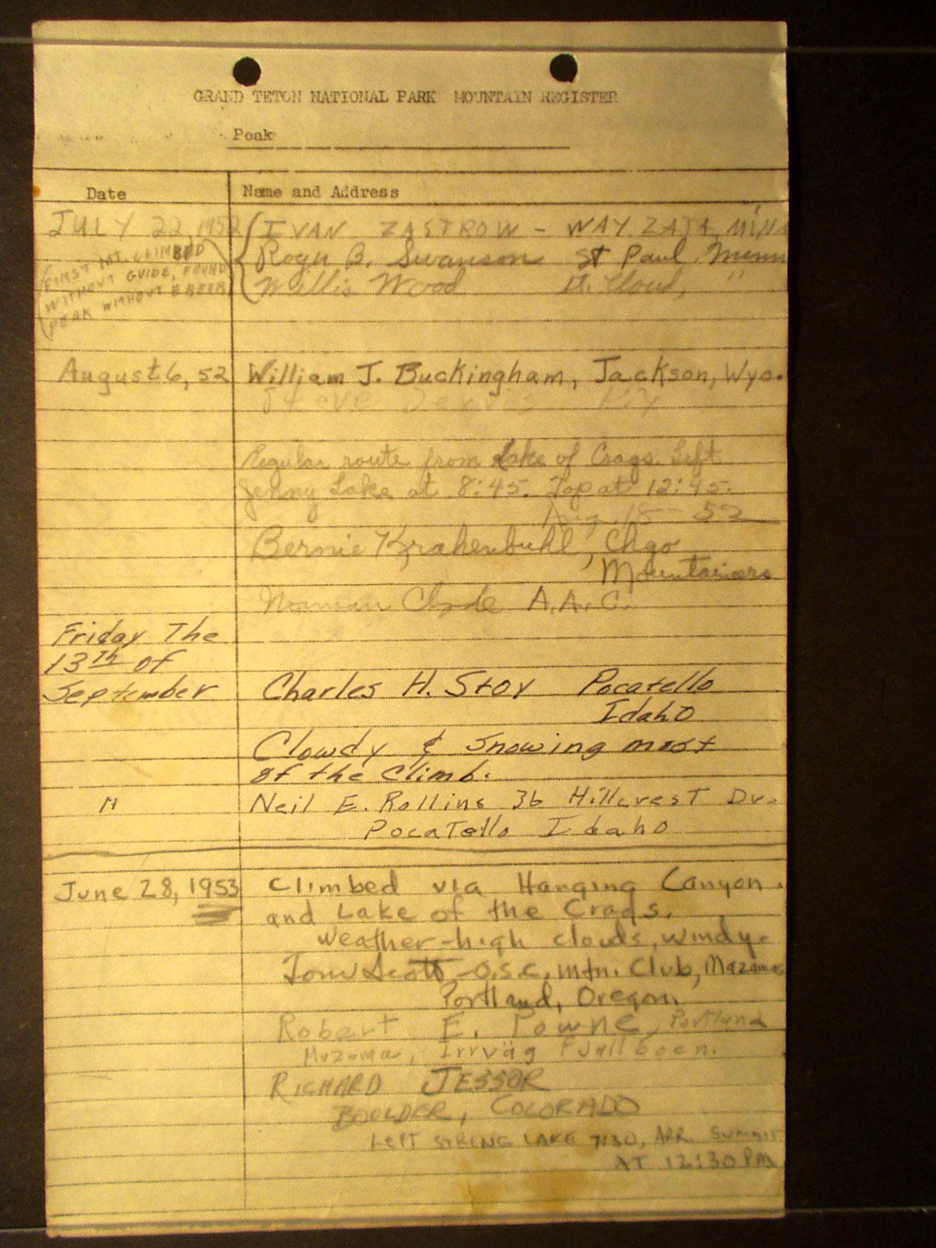 GRAND TETON NATIONAL PARK MOUNTAIN REGISTER
Peak
Date Name and Address
JULY 22, 1952 IVAN ZASTROW - WAYZATA, MINN
FIRST MT. CLIMBED
WITHOUT GUIDE, FOUND
PEAK WITHOUT ERROR
Roger B. Swanson St Paul, Minn
Willis Wood St. Cloud, "
August 6, 52 William J. Buckingham, Jackson, Wyo.
Steve
Regular route from Lake of Crags. Left
Jenny Lake at 8:45. Top at 12:45.
Aug. 18 - 52
Bernie Krahenbuhl, Chgo
Mountaineers
Norman Clyde A.A.C.
Friday The
13th of
September Charles H. Stoy Pocatello
Idaho
Clowdy & Snowing most
of the Climb.
" Neil E. Rollins 36 Hillcrest Dr.
Pocatello Idaho
June 28, 1953 Climbed via Hanging Canyon
and Lake of the Crags.
Weather-high clouds, windy.
Tom Scott - O.S.C. Mtn. Club, Mazamas
Portland, Oregon.
Robert E. Towne, Portland
Mazama,
RICHARD JESSOR
BOULDER, COLORADO
LEFT STRING LAKE 7:30, ARR. SUMMIT
AT 12:30 PM